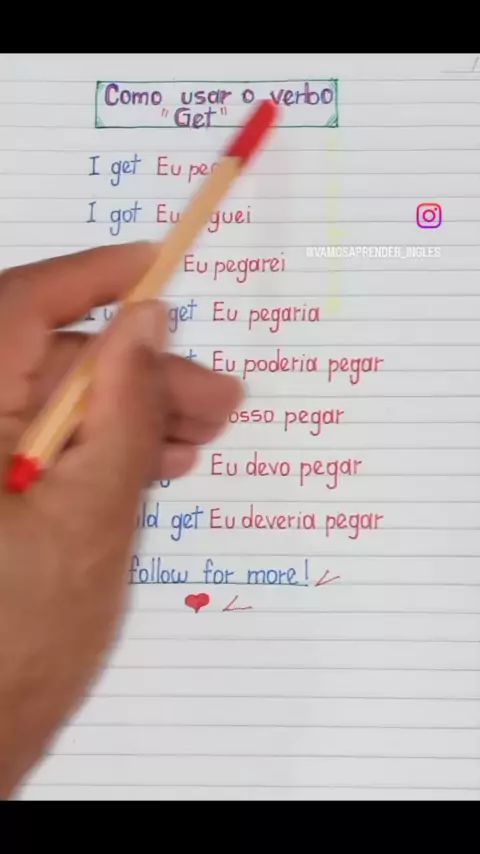 Como usar o verbo
"Get"
I get Eu
I got Eu
@VAMOSAPRENDER_INGLES
Eu pegarei
get Eu pegaria
Eu poderia pegar
pegar
Eu devo pegar
get Eu deveria pegar
follow for more!